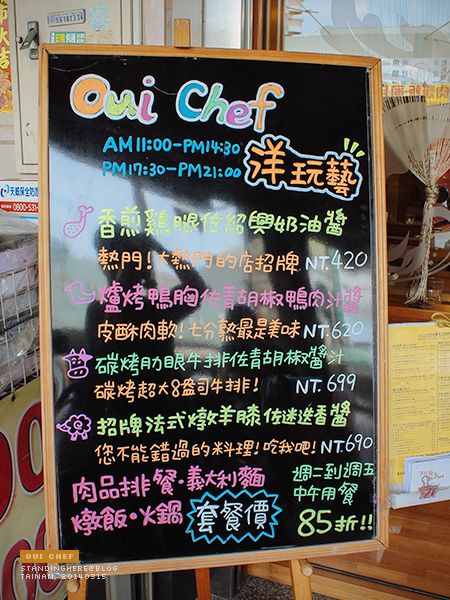 Oui Chef
AM11:00-PM14:30
PM17:30-PM21:00
洋玩藝
香煎雞腿佐紹興奶油醬
熱門!大熱門的店招牌 NT.420
爐烤鴨胸佐青胡椒鴨肉汁醬
皮酥肉軟!七分熟最是美味 NT.620
碳烤肋眼牛排佐青胡椒醬汁
碳烤超大8盎司牛排! NT.699
招牌法式燉羊膝佐迷迭香醬
您不能錯過的料理!吃我吧! NT.690
肉品排餐·義大利麵
燉飯·火鍋
套餐價
週二到週五
中午用餐
85折!!
0800-531
OUI CHEF
STANDINGHERE@BLOG
TAINAN, 20140315